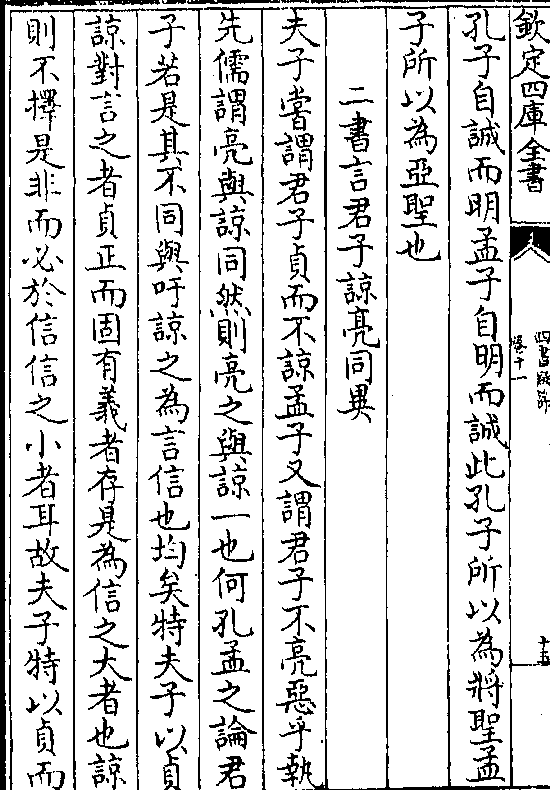 欽定四庫全書
四書疑節
卷十一
十五
孔子自誠而明孟子自明而誠此孔子所以為將聖孟
子所以為亞聖也
二書言君子諒亮同異
夫子嘗謂君子貞而不諒孟子又謂君子不亮惡乎執
先儒謂亮與諒同然則亮之與諒一也何孔孟之論君
子若是其不同與吁諒之為言信也均矣特夫子以貞
諒對言之者貞正而固有義者存是為信之大者也諒
則不擇是非而必於信信之小者耳故夫子特以貞而